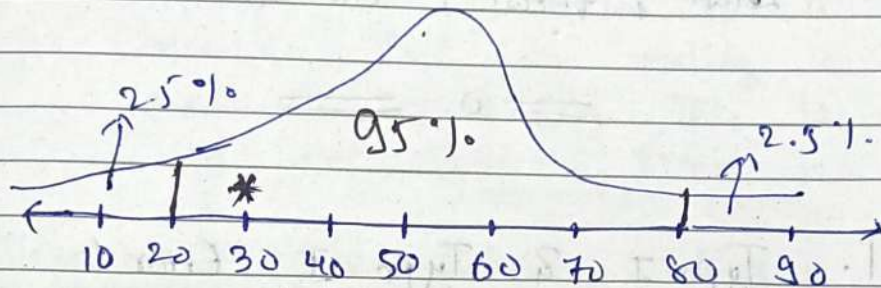 2.5%
95%
2.5%.
*
10 20 30 40 50 60 70 80 90